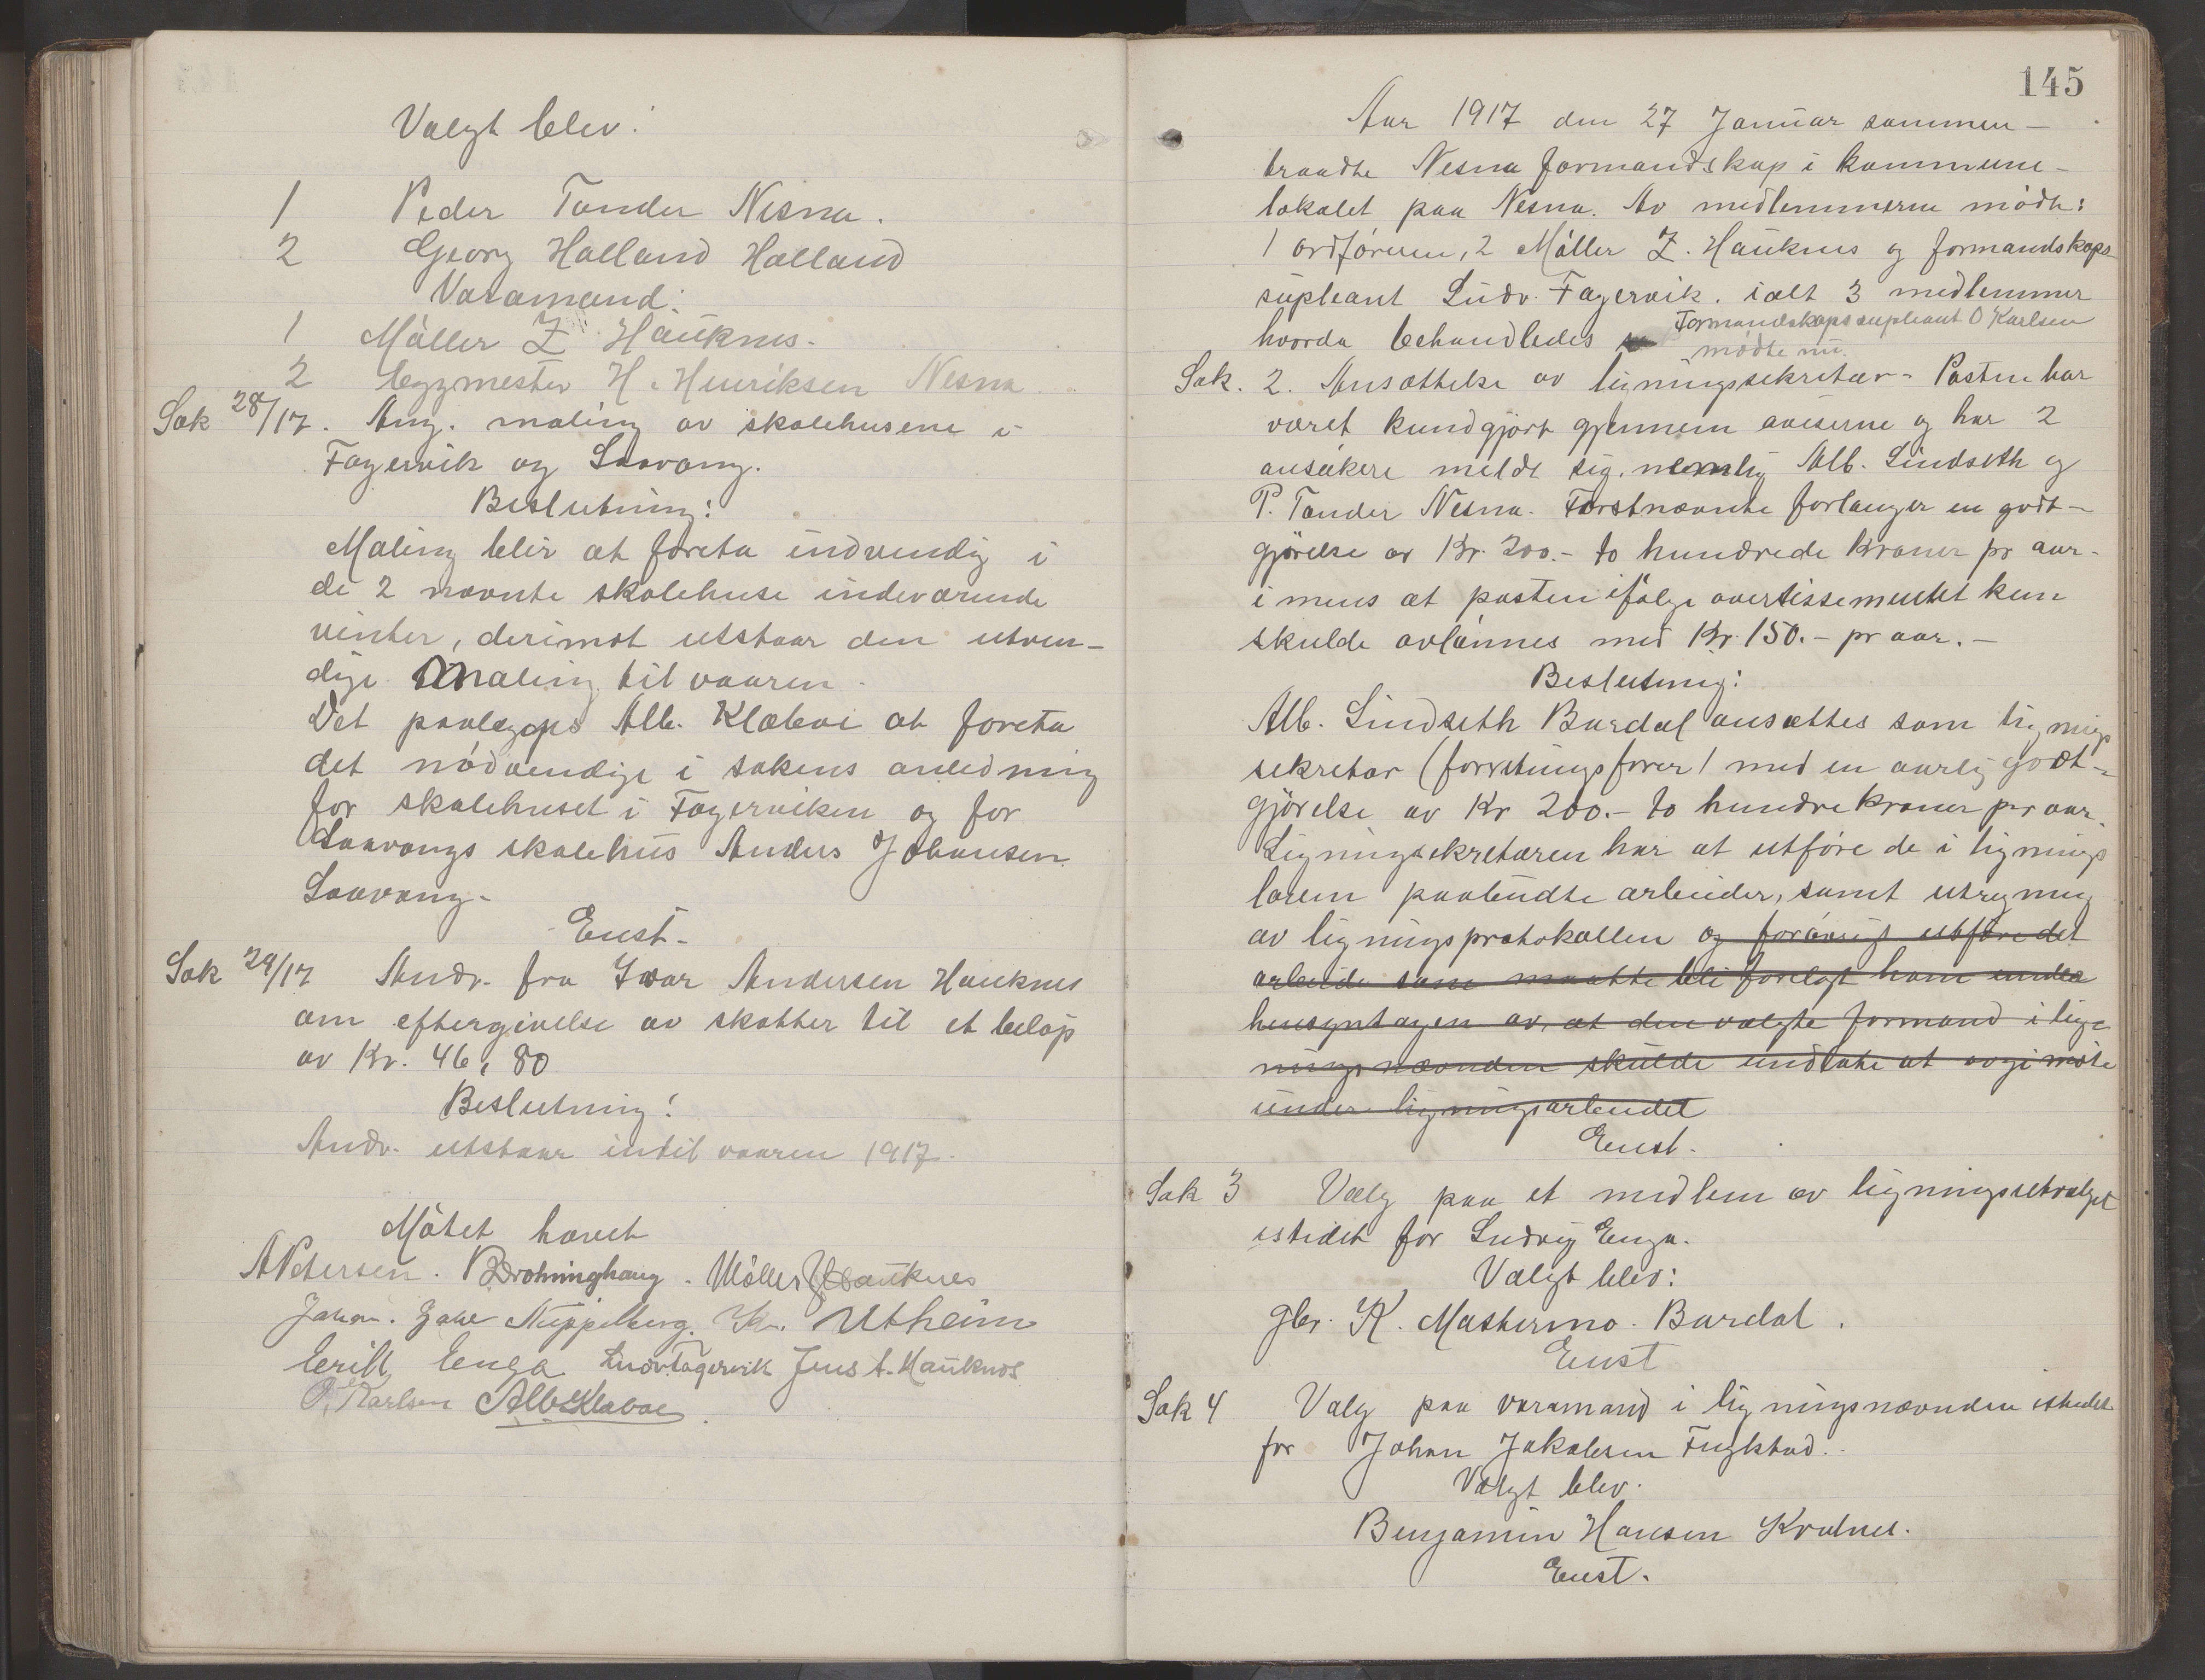 Valgt blev:
1 Peder Tander Nesna.
2 Georg Halland Halland
Varamænd:
1 Möller Z. Hauknes.
2 bygmester H. Henriksen Nesna
Sak 28/17. Ang. maling av skolehusene i
Fagervik og Saavang.
Beslutning:
Maling blir at foreta indvendig i
de 2 nævnte skolehuse indeværende
vinter, derimot utstaar den utven-
dige maling til vaaren.
Det paalægges Alb. Klæboe at foreta
det nödvendige i sakens anledning
for skolehuset i Fagerviken og for
Saavangs skolehus Anders Johansen
Saavang.
Enst.
Sak 29/17 Andr. fra Ivar Andersen Hauknes
om eftergivelse av skatter til et belöp
av Kr. 46,80
Beslutning:
Andr. utstaar indtil vaaren 1917.
Mötet hævet
A Petersen. B Dronninghaug. Möller Z Hauknes
Johan. Nuppelberg. Kr. Utheim
Erik Enga Ludv. Fagervik Jens A. Hauknes
O. Karlsen Alb Klaboe
145
Aar 1917 den 27 Januar sammen-
traadte Nesna formandskap i kommune-
lokalet paa Nesna. Av medlemmerne mödte:
1 ordföreren, 2 Möller Z. Hauknes og formandskaps
supleant Ludv. Fagervik. ialt 3 medlemmer
Formandskapssupleant O Karlsen
hvorda behandledes
mödte nu.
Sak. 2. Ansættelse av ligningssekretær. Posten har
været kundgjort gjennem aviserne og har 2
ansökere meldt sig, nemlig Alb. Lindseth og
P. Tander Nesna. Förstnævnte forlanger en godt-
gjörelse av Kr. 200.- to hundrede kroner pr aar.
imens at posten ifölge avertissementet kun
skulde avlönnes med Kr. 150.- pr aar.-
Beslutning:
Alb. Lindseth Bardal ansættes som lignings
sekretær (forretningsförer) med en aarlig godt-
gjörelse av Kr 200.- to hundre kroner pr aar.
Ligningssekretæren har at utföre de i lignings
loven paabudte arbeider, samt utregning
av ligningsprotokollen og forövrig utföre det
arbeide som maatte bli forelagt ham under
hensyntagen av, at den valgte formand i lig-
ningsnævnden skulde undlate at avgi möte
under ligningsarbeidet
Enst.
Sak 3 Valg paa et medlem av ligningsutvalget
istedet for Ludvig Enga.
Valgt blev:
gbr. K. Mastermo. Bardal.
Enst
Sak 4 Valg paa varamand i ligningsnævnden istedet
for Johan Jakobsen Fuglstad.
Valgt blev.
Benjamin Hansen Kvalnes.
Enst.